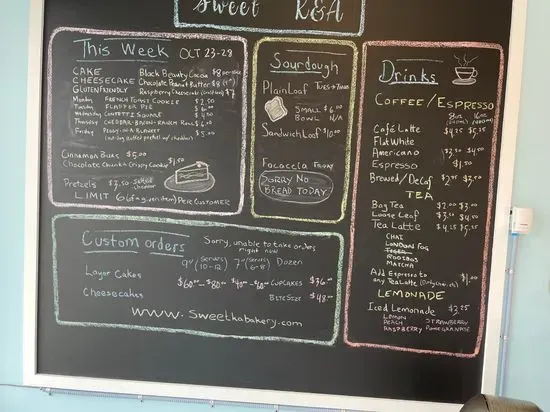 Sweet K&A
This Week OCT 23-28
CAKE Black Beauty Cocoa $8 per slice
CHEESECAKE Chocolate Peanut Butter $8
GLUTEN FRIENDLY Raspberry Cheesecake $7
Monday FRENCH TOAST COOKIE $2.50
Tuesday FLAPPER PIE $6.00
Wednesday CONFETTI SQUARE $4.00
Thursday CHEDDAR-BACON-RANCH ROLL $6.00
Friday PIGGY-IN-A-BLANKET $5.00
Cinnamon Buns $5.00
Chocolate Chunk $1.50
Pretzels $3.50 Salted Cheddar
LIMIT 6 PER CUSTOMER
Sourdough
Plain Loaf TUES → THURS
SMALL $6.00
BOWL N/A
Sandwich Loaf $10.00
Focaccia FRIDAY
SORRY NO
BREAD TODAY
Drinks
COFFEE/ESPRESSO
Café Latte $4.25 $5.25
Flat White
Americano $3.50 $4.50
Espresso $1.50
Brewed/Decaf
TEA
Bag Tea $2.00 $3.00
Loose Leaf $3.50 $4.50
Tea Latte $4.25 $5.25
CHAI
LONDON FOG
ROOIBOS
MATCHA
Add Espresso to $1.00
any Tea Latte
LEMONADE
Iced Lemonade $3.25
LEMON STRAWBERRY
PEACH POMEGRANATE
RASPBERRY
Custom orders Sorry, unable to take orders
right now
9" (SERVES 10-12) 7" (SERVES 6-8) Dozen
Layer Cakes $60.00-$80.00 $40.00-$60.00 CUPCAKES $36.00
Cheesecakes BITE SIZE $48.00
www.sweetkabakery.com